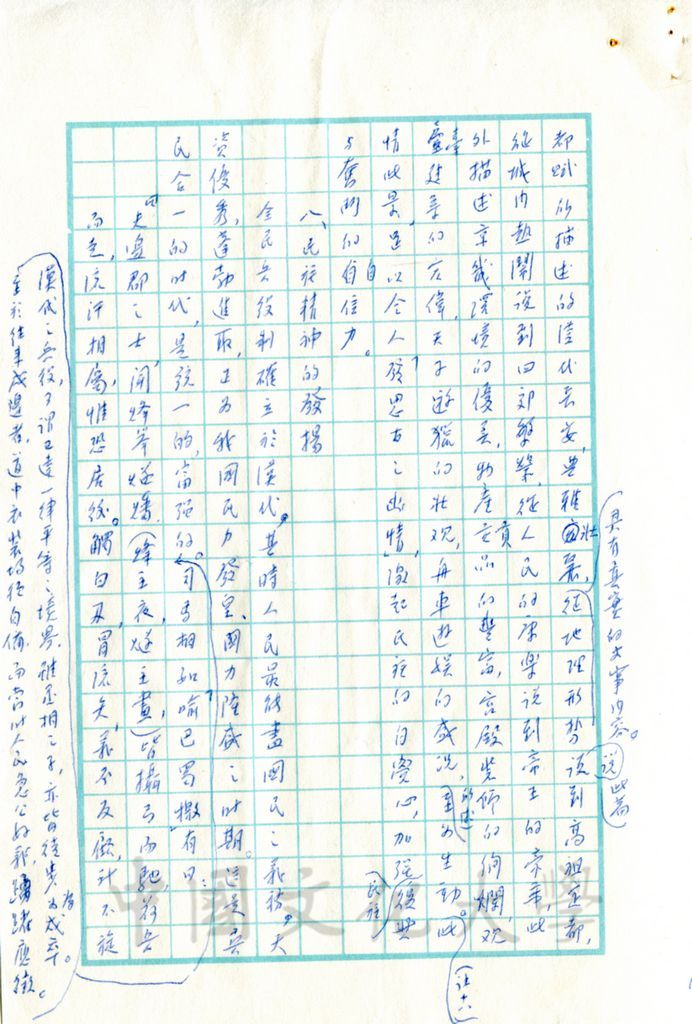 都賦所描述的漢代長安，典雅壯麗，從地理形勢談到高祖定都，
從城內熱鬧說到四郊繁榮，從人民的康樂說到帝王的榮華，此
外描述京畿環境的優美，物產貢品的豐富，宮殿裝飾的絢爛，觀
臺建築的宏偉，天子遊獵的壯觀，舟車遊娛的盛況，生動。此
情此景，足以令人發思古之幽情，激起民族的自覺心，加強民族復興
與奮鬥的自信力。
具有真實的文事內容。
說此為
(註十八)
八、民族精神的發揚
全民兵役制確立於漢代，其時人民最能盡國民之義務，天
資優秀，蓬勃進取，正為我國民力發皇、國力隆盛之時期。這是兵
民合一的時代，是統一的，富強的。司馬相如喻巴蜀檄有曰：
「夫邊郡之士，聞烽舉燧燔，(烽主夜，燧主晝)皆攝弓而馳，荷兵
而走，流汗相屬，惟恐居後。觸白刃，冒流矢，義不反顧，計不旋
漢代之兵役，可謂已達一律平等之境界，雖丞相之子，亦皆徒步為戍卒。
至於往來戍邊者，道中衣裝均須自備，而當時人民急公好義，踴躍應徵。
中國文化大學